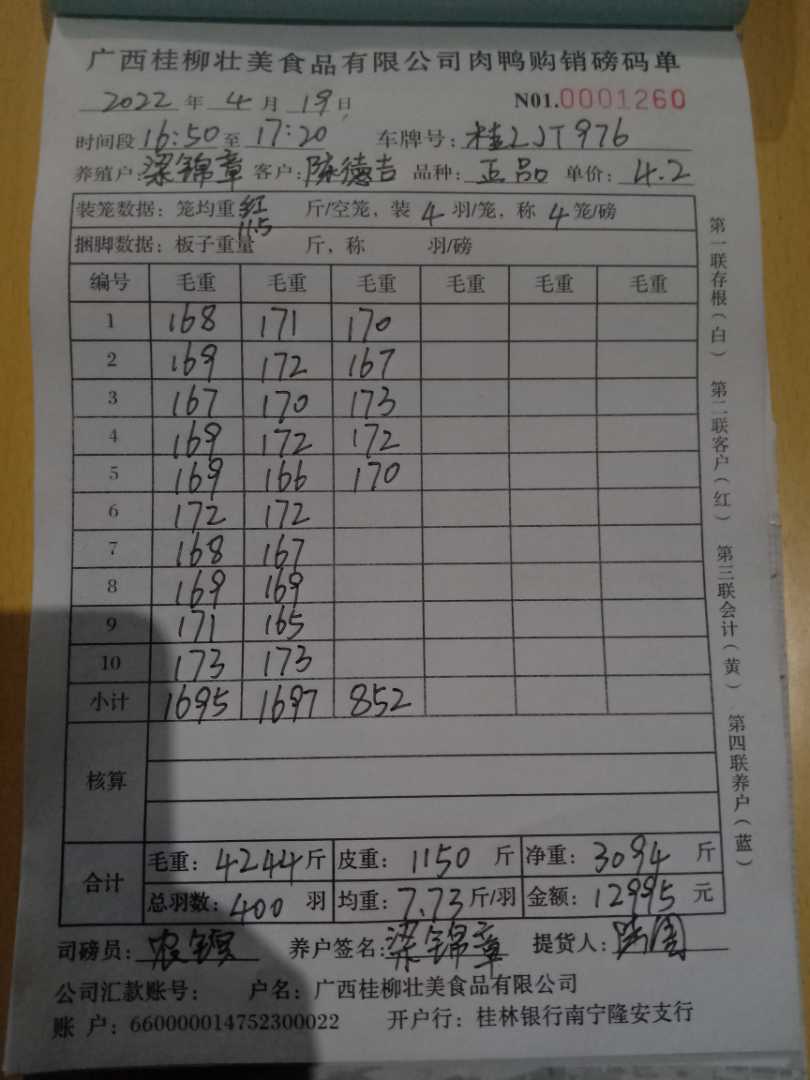 广西桂柳壮美食品有限公司肉鸭购销磅码单
2022 年 4 月 19 日 N01.0001260
时间段 16:50 至 17:20 车牌号: 桂LJT976
养殖户: 梁锦章 客户: 陈德吉 品种: 正品 单价: 4.2
装笼数据: 笼均重 红 11.5 斤/空笼, 装 4 羽/笼, 称 4 笼/磅
捆脚数据: 板子重量 斤, 称 羽/磅
编号 毛重 毛重 毛重 毛重 毛重 毛重
1 168 171 170
2 169 172 167
3 167 170 173
4 169 172 172
5 169 166 170
6 172 172
7 168 167
8 169 169
9 171 165
10 173 173
小计 1695 1697 852
核算
合计 毛重: 4244 斤 皮重: 1150 斤 净重: 3094 斤
总羽数: 400 羽 均重: 7.73 斤/羽 金额: 12995 元
司磅员: 养户签名: 梁锦章 提货人:
公司汇款账号: 户名: 广西桂柳壮美食品有限公司
账 户: 660000014752300022 开户行: 桂林银行南宁隆安支行
第一联存根(白) 第二联客户(红) 第三联会计(黄) 第四联养户(蓝)